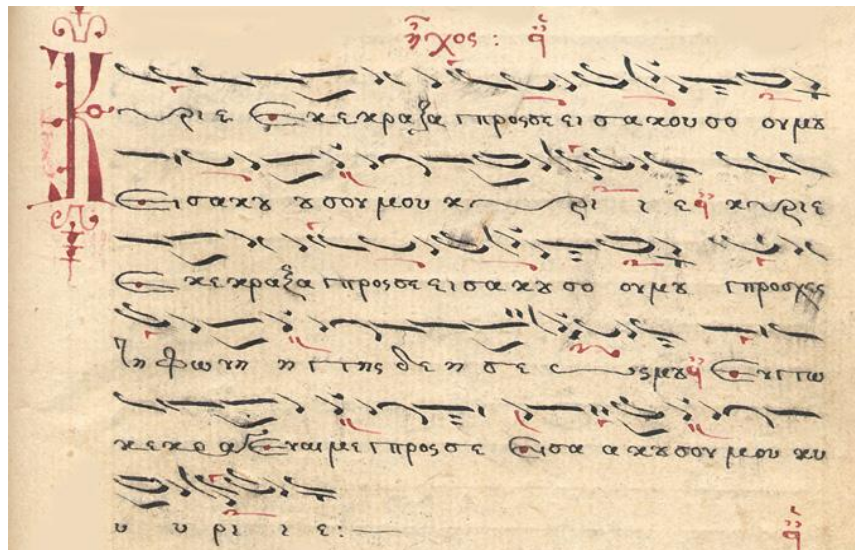 ἦχος: q̈
Κύριε Εκεκραξα προς σε εισακουσο ουμȣ
Εισακȣ ȣσουμου κυρι ι ε κυριε
Εκεκραξα προς σε εισακȣσο ουμȣ προσχες
τη φωνη η της δεησε ωςμȣ Εν τω
κεκραγεναι με προς σε Εισα ακȣσουμου κυ
υ υ ρι ι ε: